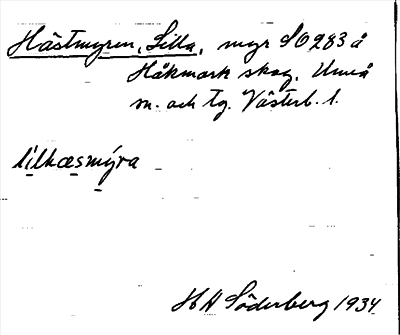 Hästmyren, Lilla, myr SO 283 å
Håkmark skog, Umeå
sn. och tg. Västerb. l.
lilhæsmýra
H A Söderberg 1934.